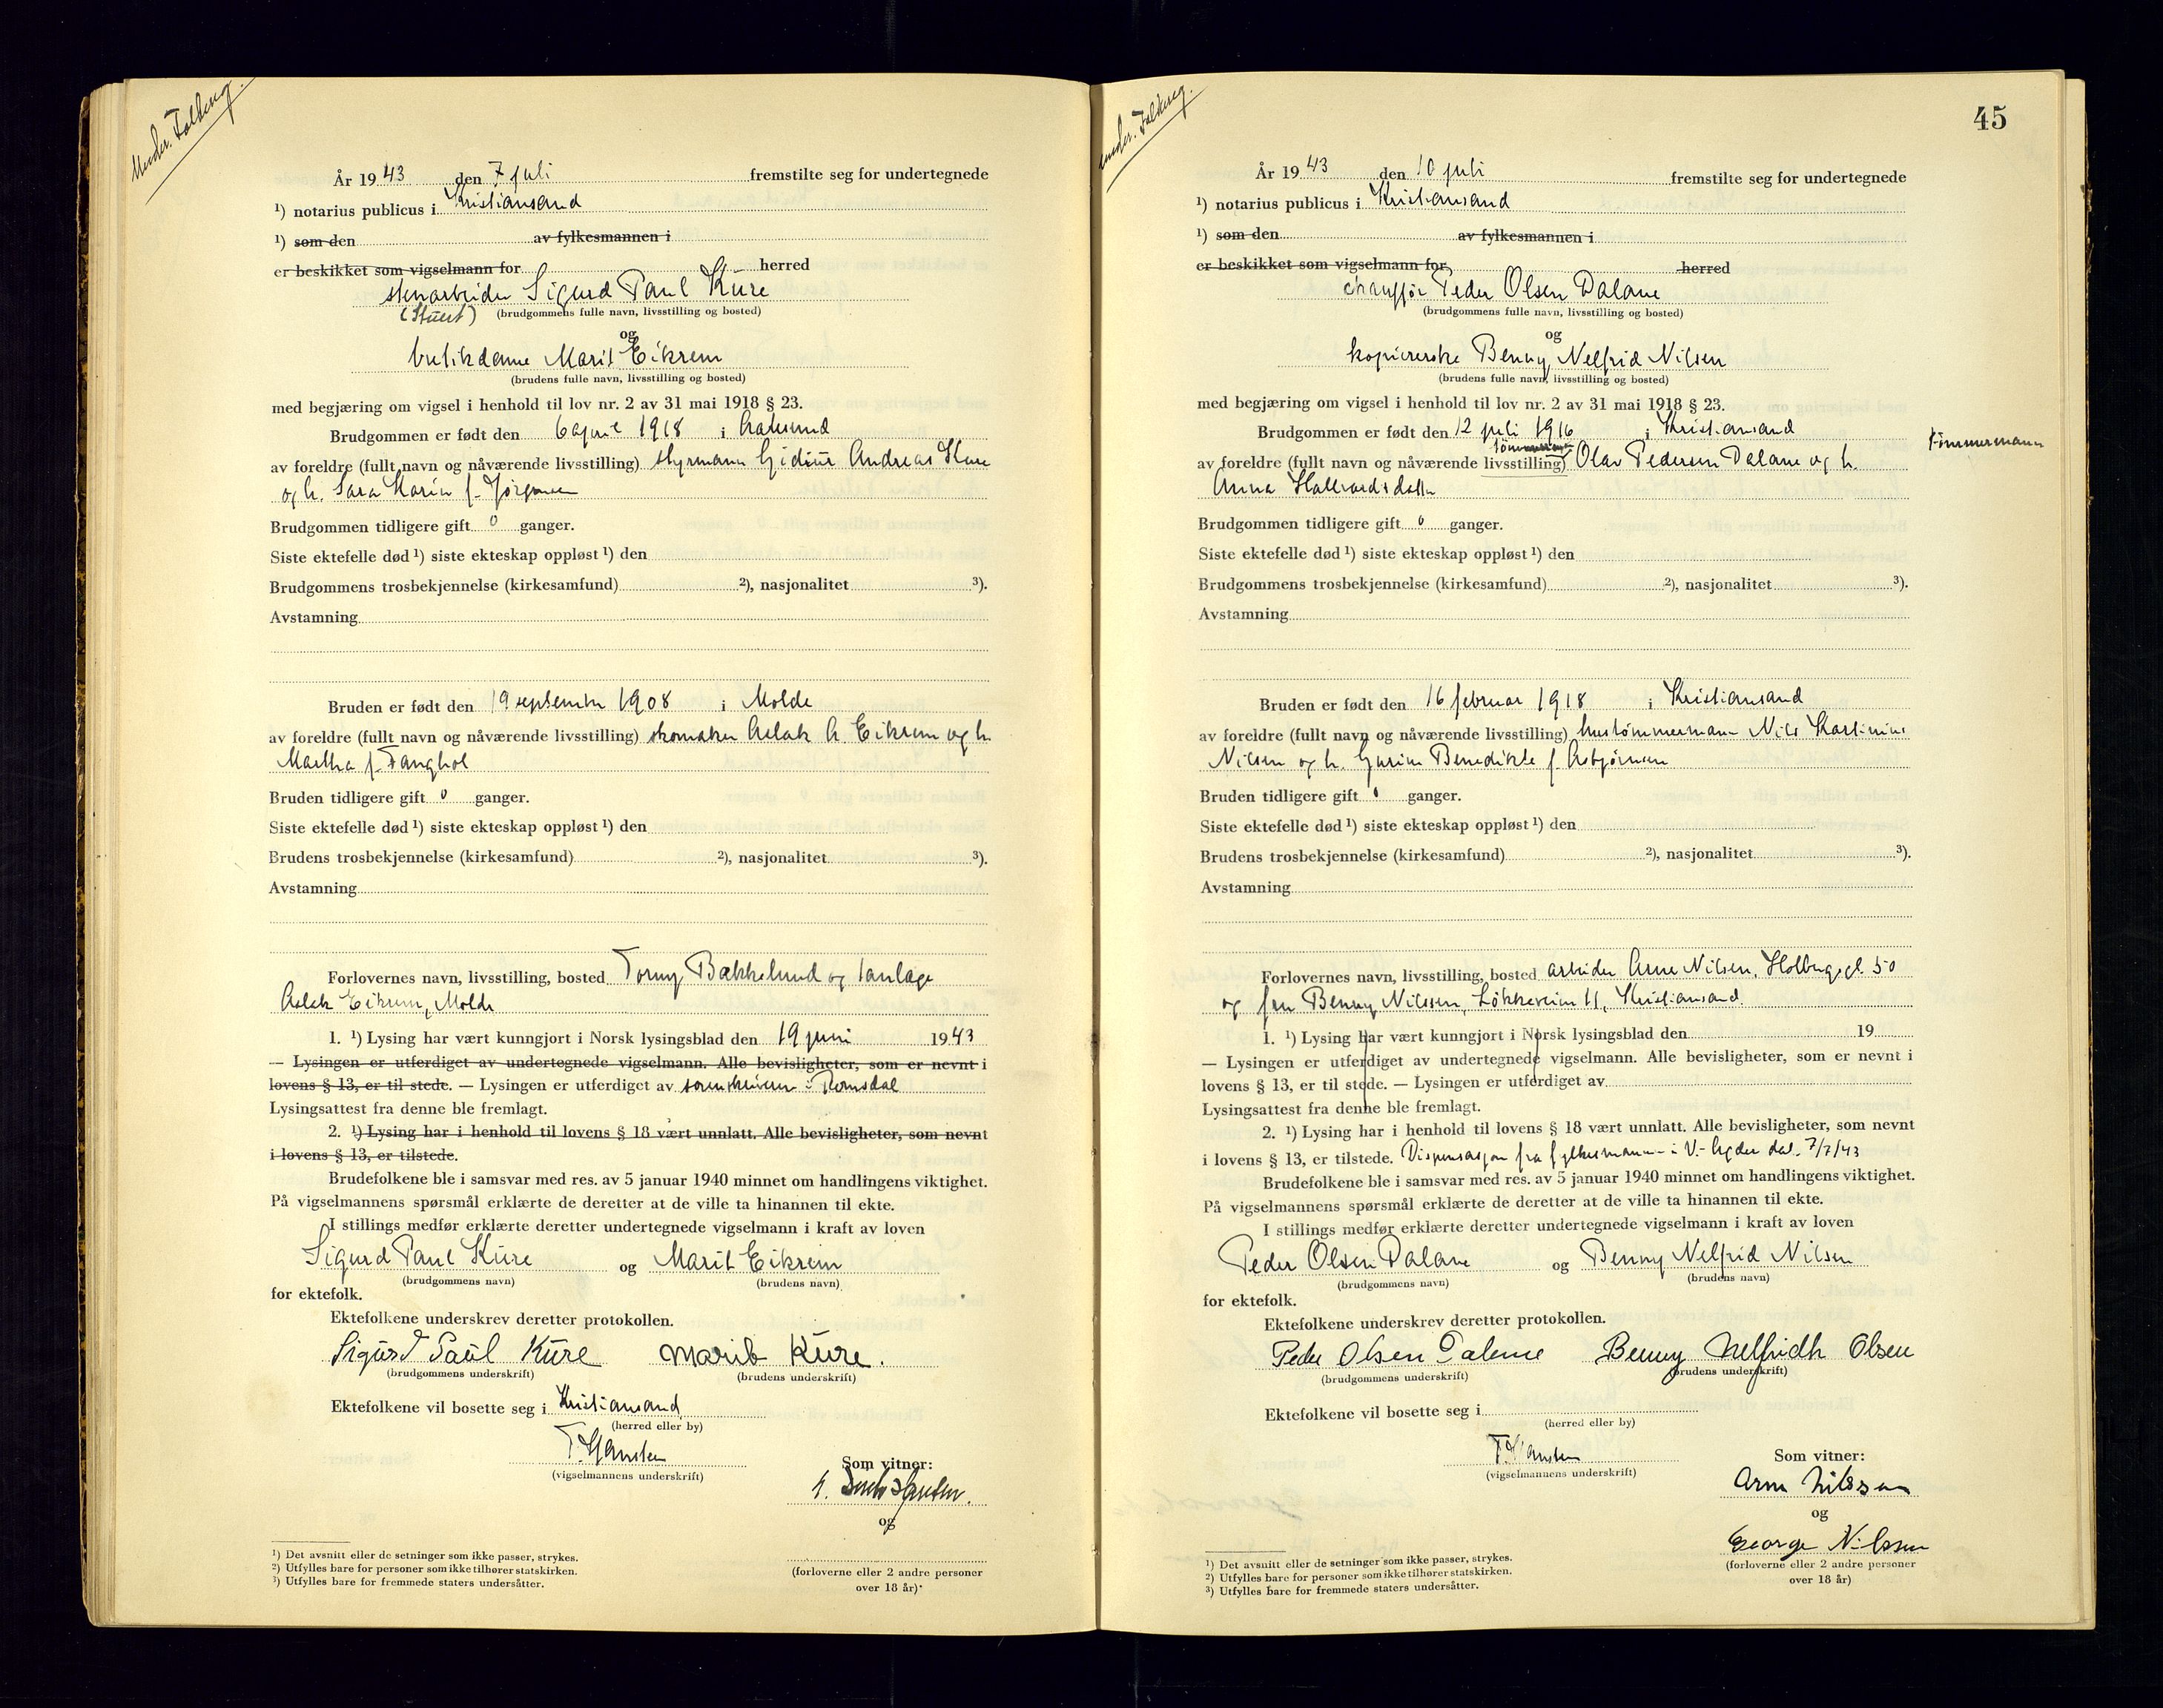 Under. Falkeng.
År 1943 den 7 juli fremstilte seg for undertegnede
¹) notarius publicus i Kristiansand
¹) som den av fylkesmannen i
er beskikket som vigselmann for herred
stenarbeider Sigurd Paul Küre
(brudgommens fulle navn, livsstilling og bosted)
og
butikdame Marit Eikrem
(brudens fulle navn, livsstilling og bosted)
med begjæring om vigsel i henhold til lov nr. 2 av 31 mai 1918 § 23.
Brudgommen er født den 6 april 1918 i Aalesund
av foreldre (fullt navn og nåværende livsstilling) styrmann Andreas Küre
og h. Sara Karin f. Jørgensen
Brudgommen tidligere gift 0 ganger.
Siste ektefelle død ¹) siste ekteskap oppløst ¹) den
Brudgommens trosbekjennelse (kirkesamfund) ²), nasjonalitet ³).
Avstamning
Bruden er født den 19 september 1908 i Molde
av foreldre (fullt navn og nåværende livsstilling) skomaker Aslak A. Eikrem og h.
Martha f. Tanghol
Bruden tidligere gift 0 ganger.
Siste ektefelle død ¹) siste ekteskap oppløst ¹) den
Brudens trosbekjennelse (kirkesamfund) ²), nasjonalitet ³).
Avstamning
Forlovernes navn, livsstilling, bosted Torny Bækkelund og tanlæge
Aslak Eikrem, Molde
1. ¹) Lysing har vært kunngjort i Norsk lysingsblad den 19 juni 1943
— Lysingen er utferdiget av undertegnede vigselmann. Alle bevisligheter, som er nevnt i
lovens § 13, er til stede. — Lysingen er utferdiget av sorenskriveren i Romsdal
Lysingsattest fra denne ble fremlagt.
2. ¹) Lysing har i henhold til lovens § 18 vært unnlatt. Alle bevisligheter, som nevnt
i lovens § 13, er tilstede.
Brudefolkene ble i samsvar med res. av 5 januar 1940 minnet om handlingens viktighet.
På vigselmannens spørsmål erklærte de deretter at de ville ta hinannen til ekte.
I stillings medfør erklærte deretter undertegnede vigselmann i kraft av loven
Sigurd Paul Küre og Marit Eikrem
(brudgommens navn) (brudens navn)
for ektefolk.
Ektefolkene underskrev deretter protokollen.
Sigurd Paul Küre Marit Küre.
(brudgommens underskrift) (brudens underskrift)
Ektefolkene vil bosette seg i Kristiansand
(herred eller by)
T. Hansten
(vigselmannens underskrift)
Som vitner:
og
(forloverne eller 2 andre personer
over 18 år).
¹) Det avsnitt eller de setninger som ikke passer, strykes.
²) Utfylles bare for personer som ikke tilhører statskirken.
³) Utfylles bare for fremmede staters undersåtter.
Under. Falkeng.
45
År 1943 den 10 juli fremstilte seg for undertegnede
¹) notarius publicus i Kristiansand
¹) som den av fylkesmannen i
er beskikket som vigselmann for herred
chauffør Peder Olsen Dalane
(brudgommens fulle navn, livsstilling og bosted)
og
kopiererske Benny Nelfrid Nilsen
(brudens fulle navn, livsstilling og bosted)
med begjæring om vigsel i henhold til lov nr. 2 av 31 mai 1918 § 23.
Brudgommen er født den 12 juli 1916 i Kristiansand
tømmermann
av foreldre (fullt navn og nåværende livsstilling) Olav Pedersen Dalane og h.
Anna Hallvardsdatter
Brudgommen tidligere gift 0 ganger.
Siste ektefelle død ¹) siste ekteskap oppløst ¹) den
Brudgommens trosbekjennelse (kirkesamfund) ²), nasjonalitet ³).
Avstamning
Bruden er født den 16 februar 1918 i Kristiansand
av foreldre (fullt navn og nåværende livsstilling) hustømmermann Nils Karlinius
Nilsen og h. Gurine Benedikte f. Asbjørnsen
Bruden tidligere gift 0 ganger.
Siste ektefelle død ¹) siste ekteskap oppløst ¹) den
Brudens trosbekjennelse (kirkesamfund) ²), nasjonalitet ³).
Avstamning
Forlovernes navn, livsstilling, bosted arbeider Arne Nilsen, Holbergsgt. 50
og fru Benny Nilssen, Løkkeveien 11, Kristiansand.
1. ¹) Lysing har vært kunngjort i Norsk lysingsblad den 19
— Lysingen er utferdiget av undertegnede vigselmann. Alle bevisligheter, som er nevnt i
lovens § 13, er til stede. — Lysingen er utferdiget av
Lysingsattest fra denne ble fremlagt.
2. ¹) Lysing har i henhold til lovens § 18 vært unnlatt. Alle bevisligheter, som nevnt
i lovens § 13, er tilstede. Dispensasjon fra fylkesmannen i V.-Agder dat. 7/7/43
Brudefolkene ble i samsvar med res. av 5 januar 1940 minnet om handlingens viktighet.
På vigselmannens spørsmål erklærte de deretter at de ville ta hinannen til ekte.
I stillings medfør erklærte deretter undertegnede vigselmann i kraft av loven
Peder Olsen Dalane og Benny Nelfrid Nilsen
(brudgommens navn) (brudens navn)
for ektefolk.
Ektefolkene underskrev deretter protokollen.
Peder Olsen Dalane Benny Nelfridh Olsen
(brudgommens underskrift) (brudens underskrift)
Ektefolkene vil bosette seg i
(herred eller by)
T. Hansten
(vigselmannens underskrift)
Som vitner:
Arne Nilssen
og
George Nilssen
(forloverne eller 2 andre personer
over 18 år)
¹) Det avsnitt eller de setninger som ikke passer, strykes.
²) Utfylles bare for personer som ikke tilhører statskirken.
³) Utfylles bare for fremmede staters undersåtter.